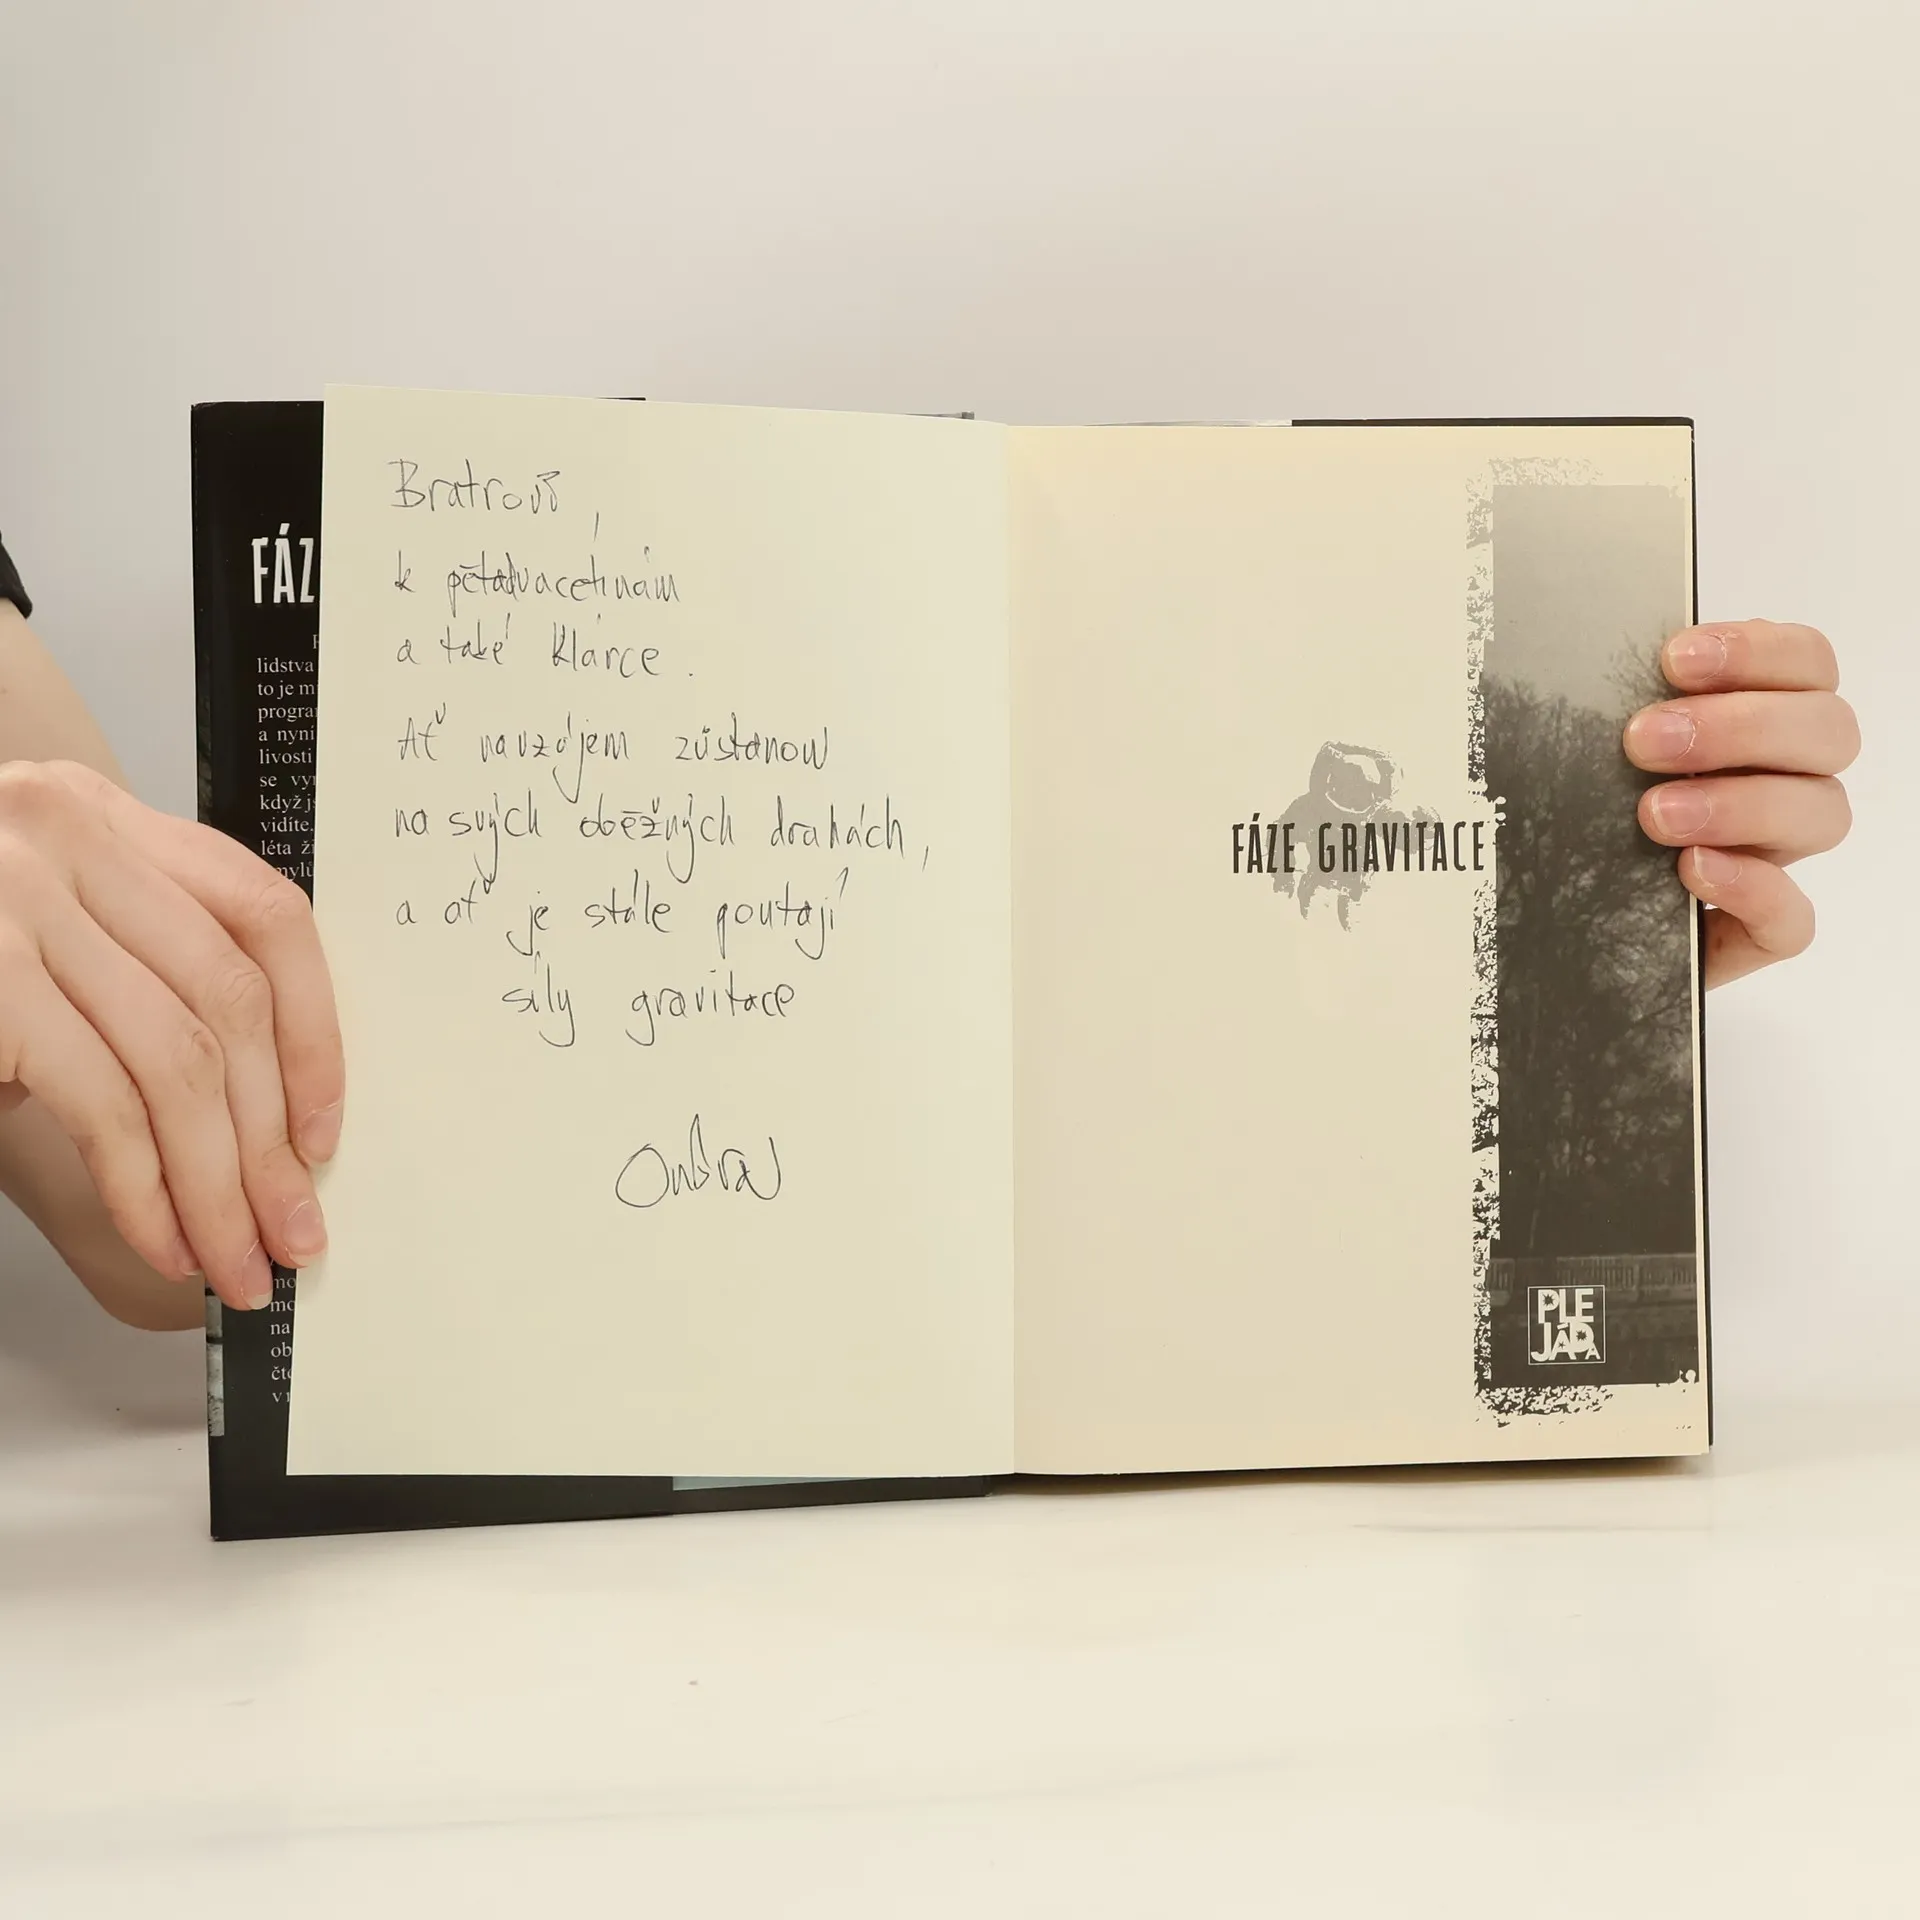 FÁZ
lidstva
to je m
progra
a nyní
livosti
se vy
když j
vidíte.
léta ži
mylů
mo
mo
na
ob
čte
v
Bratrovi
k pětadvacetinám
a také Klárce.
Ať navzájem zůstanou
na svých oběžných drahách,
a ať je stále poutají
síly gravitace
Ondra
FÁZE GRAVITACE
PLE
JÁDA